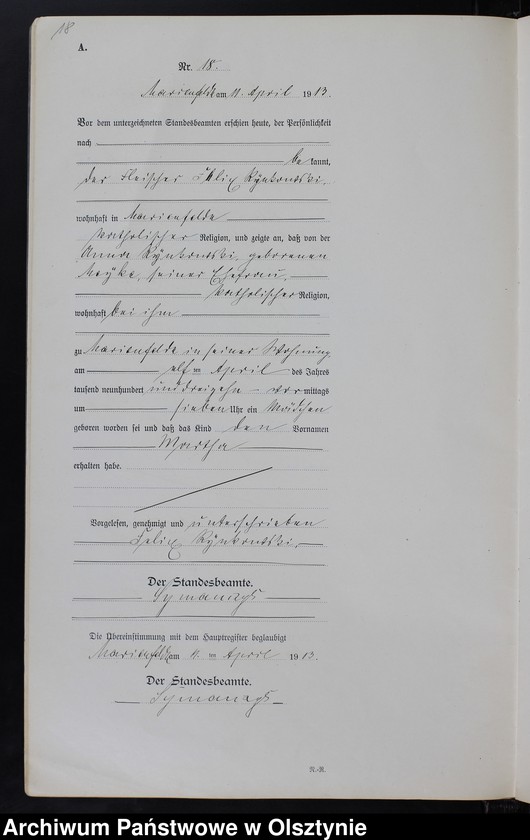 18
A.
Nr. 18.
Marienfelde am 11. April 1913.
Vor dem unterzeichneten Standesbeamten erschien heute, der Persönlichkeit
nach
be kannt,
der Fleischer Felix Rynkowski,
wohnhaft in Marienfelde
katholischer Religion, und zeigte an, daß von der
Anna Rynkowski, geborenen
seiner Ehefrau,
katholischer Religion,
wohnhaft bei ihm
zu Marienfelde in seiner Wohnung
am elf ten April des Jahres
tausend neunhundert und dreizehn vor mittags
um sieben Uhr ein Mädchen
geboren worden sei und daß das Kind den Vornamen
Martha
erhalten habe.
Vorgelesen, genehmigt und unterschrieben
Felix Rynkowski.
Der Standesbeamte.
Die Übereinstimmung mit dem Hauptregister beglaubigt
Marienfelde am 11. ten April 1913.
Der Standesbeamte.
N.-R.
Archiwum Państwowe w Olsztynie